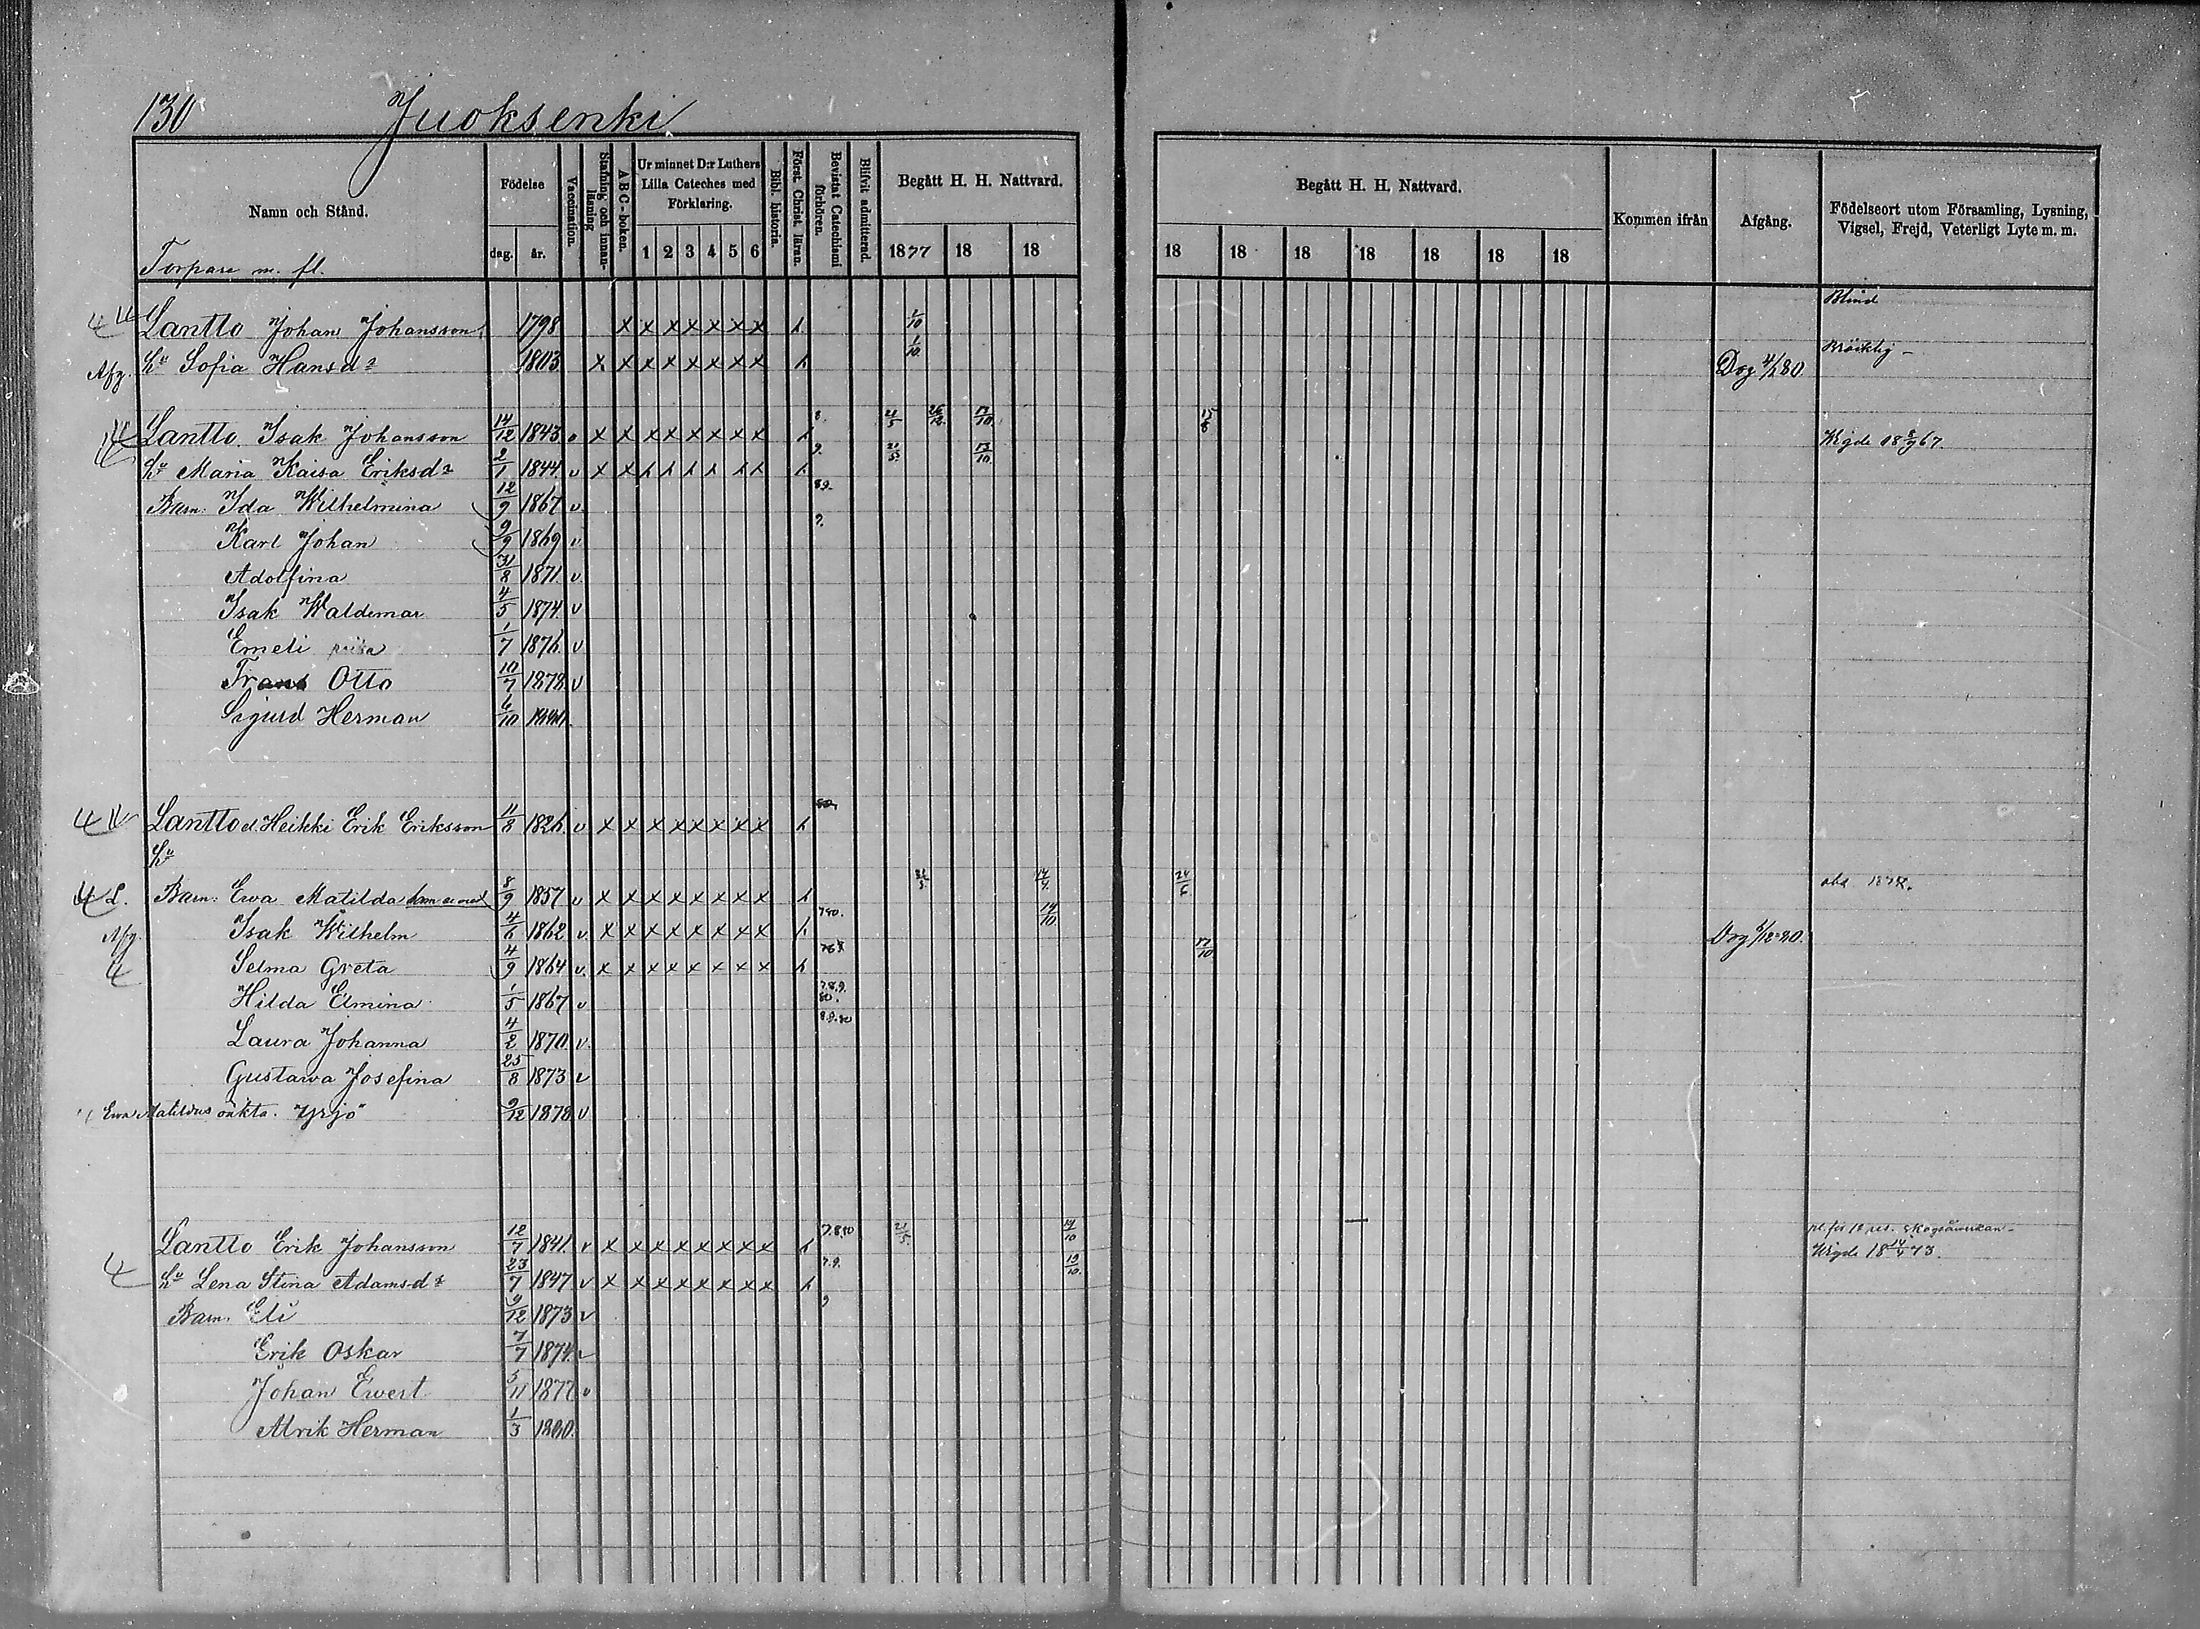 130 Juoksenki
Namn och Stånd. Födelse dag. år. Vaccination. Stafning och innanläsning A B C-boken. Ur minnet D:r Luthers Lilla Cateches med Förklaring. 1 2 3 4 5 6 Bibl. historia. Först. Christ. läran. Bevistat Catechismi förhören. Blifvit admitterad. Begått H. H. Nattvard. 1877 18 18
Begått H. H. Nattvard. 18 18 18 18 18 18 18 Kommen ifrån Afgång. Födelseort utom Församling, Lysning, Vigsel, Frejd, Veterligt Lyte m. m.
Torpare m. fl.
Lantto Johan Johansson 1798 x x x x x x x 1/10 Blind
Afg. Hu Sofia Hansdr 1803 x x x x x x x x 1/10 Dog 4/1 80 Bräcklig
Lantto Isak Johansson 14/12 1843 v x x x x x x x x 8. 21/5 26/12 13/10 15/6 Wigde 18 8/9 67.
Hu Maria Kaisa Eriksdr 2/1 1844 v x x 9. 21/5 13/10
Barn: Ida Wilhelmina 12/9 1867 v 89.
Karl Johan 9/9 1869 v 9.
Adolfina 31/8 1871 v
Isak Waldemar 4/5 1874 v
Emeli 1/7 1876 v
Frans Otto 10/7 1878 v
Sigurd Herman 6/10
Lantto el. Heikki Erik Eriksson 11/8 1826 v x x x x x x x x
Hu
L. Barn: Ewa Matilda 8/9 1857 v x x x x x x x x 14/4 24/6
Afg. Isak Wilhelm 4/6 1862 v x x x x x x x x 780. 14/10 Dog 6/12 80.
Selma Greta 4/9 1864 v x x x x x x x x 17/10
Hilda Elmina 1/5 1867 v 7.8.9. 80.
Laura Johanna 4/2 1870 v 8.9.80
Gustawa Josefina 25/8 1873 v
Ewa Matildas oäkta. "Yrjö" 9/12 1878 v
Lantto Erik Johansson 12/7 1841 v x x x x x x x x 7.8.80 21/5 14/10
Hu Lena Stina Adamsdr 23/7 1847 v x x x x x x x x 7.9. 19/10 Wigde 18 14/4 73.
Barn. Eli 9/12 1873 v 9
Erik Oskar 7/7 1874 v
Johan Ewert 5/11 1877 v
Alrik Herman 1/3 1880